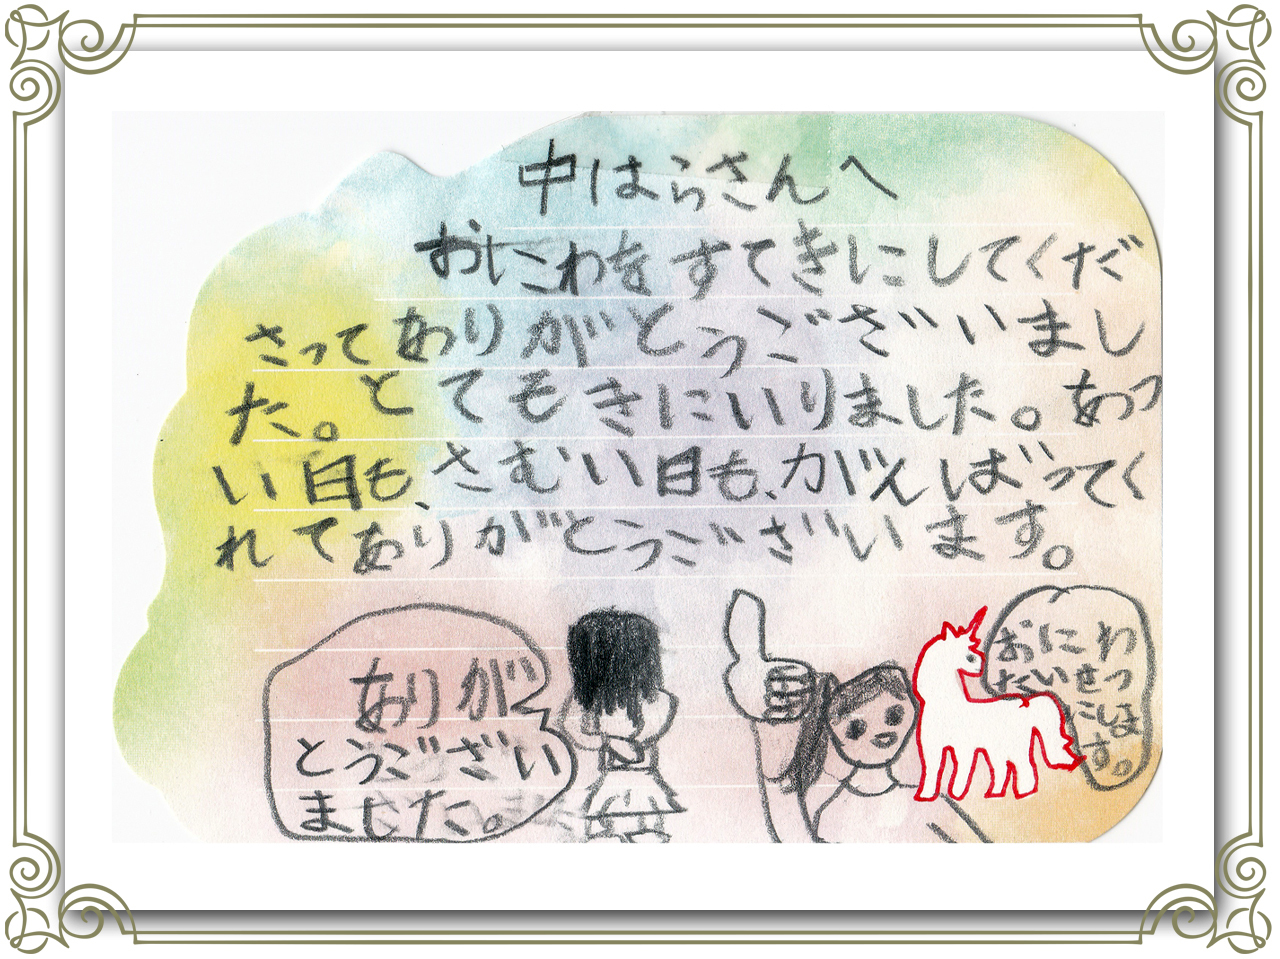 中はらさんへ
おにわをすてきにしてくだ
さってありがとうございまし
た。とてもきにいりました。あつ
い日も、さむい日も、がんばってく
れてありがとうございます。
ありが
とうござい
ました。
おにわ
たいせつ
にしま
す。